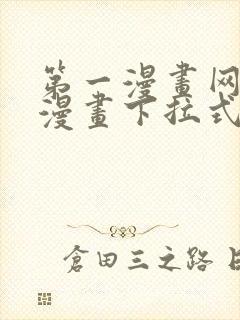 第一漫畫网
漫畫下拉式
倉田三之路